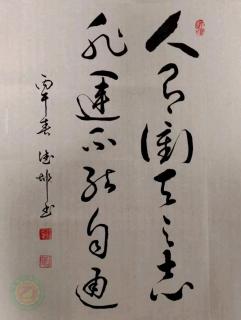 人有冲天之志
非运不能自通
丙午春 德邮书